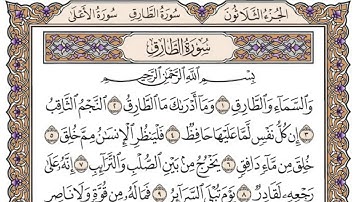 الجُزْءُ الثَّلَاثُونَ سُورَةُ الطَّارِقِ سُورَةُ الأَعْلَى
سُورَةُ الطَّارِقِ
بِسْمِ اللَّهِ الرَّحْمَٰنِ الرَّحِيمِ
وَالسَّمَاءِ وَالطَّارِقِ ١ وَمَا أَدْرَىٰكَ مَا الطَّارِقُ ٢ النَّجْمُ الثَّاقِبُ
٣ إِن كُلُّ نَفْسٍ لَّمَّا عَلَيْهَا حَافِظٌ ٤ فَلْيَنظُرِ الْإِنسَٰنُ مِمَّ خُلِقَ ٥
خُلِقَ مِن مَّاءٍ دَافِقٍ ٦ يَخْرُجُ مِن بَيْنِ الصُّلْبِ وَالتَّرَائِبِ ٧ إِنَّهُ عَلَىٰ
رَجْعِهِ لَقَادِرٌ ٨ يَوْمَ تُبْلَى السَّرَائِرُ ٩ فَمَا لَهُ مِن قُوَّةٍ وَلَا نَاصِرٍ